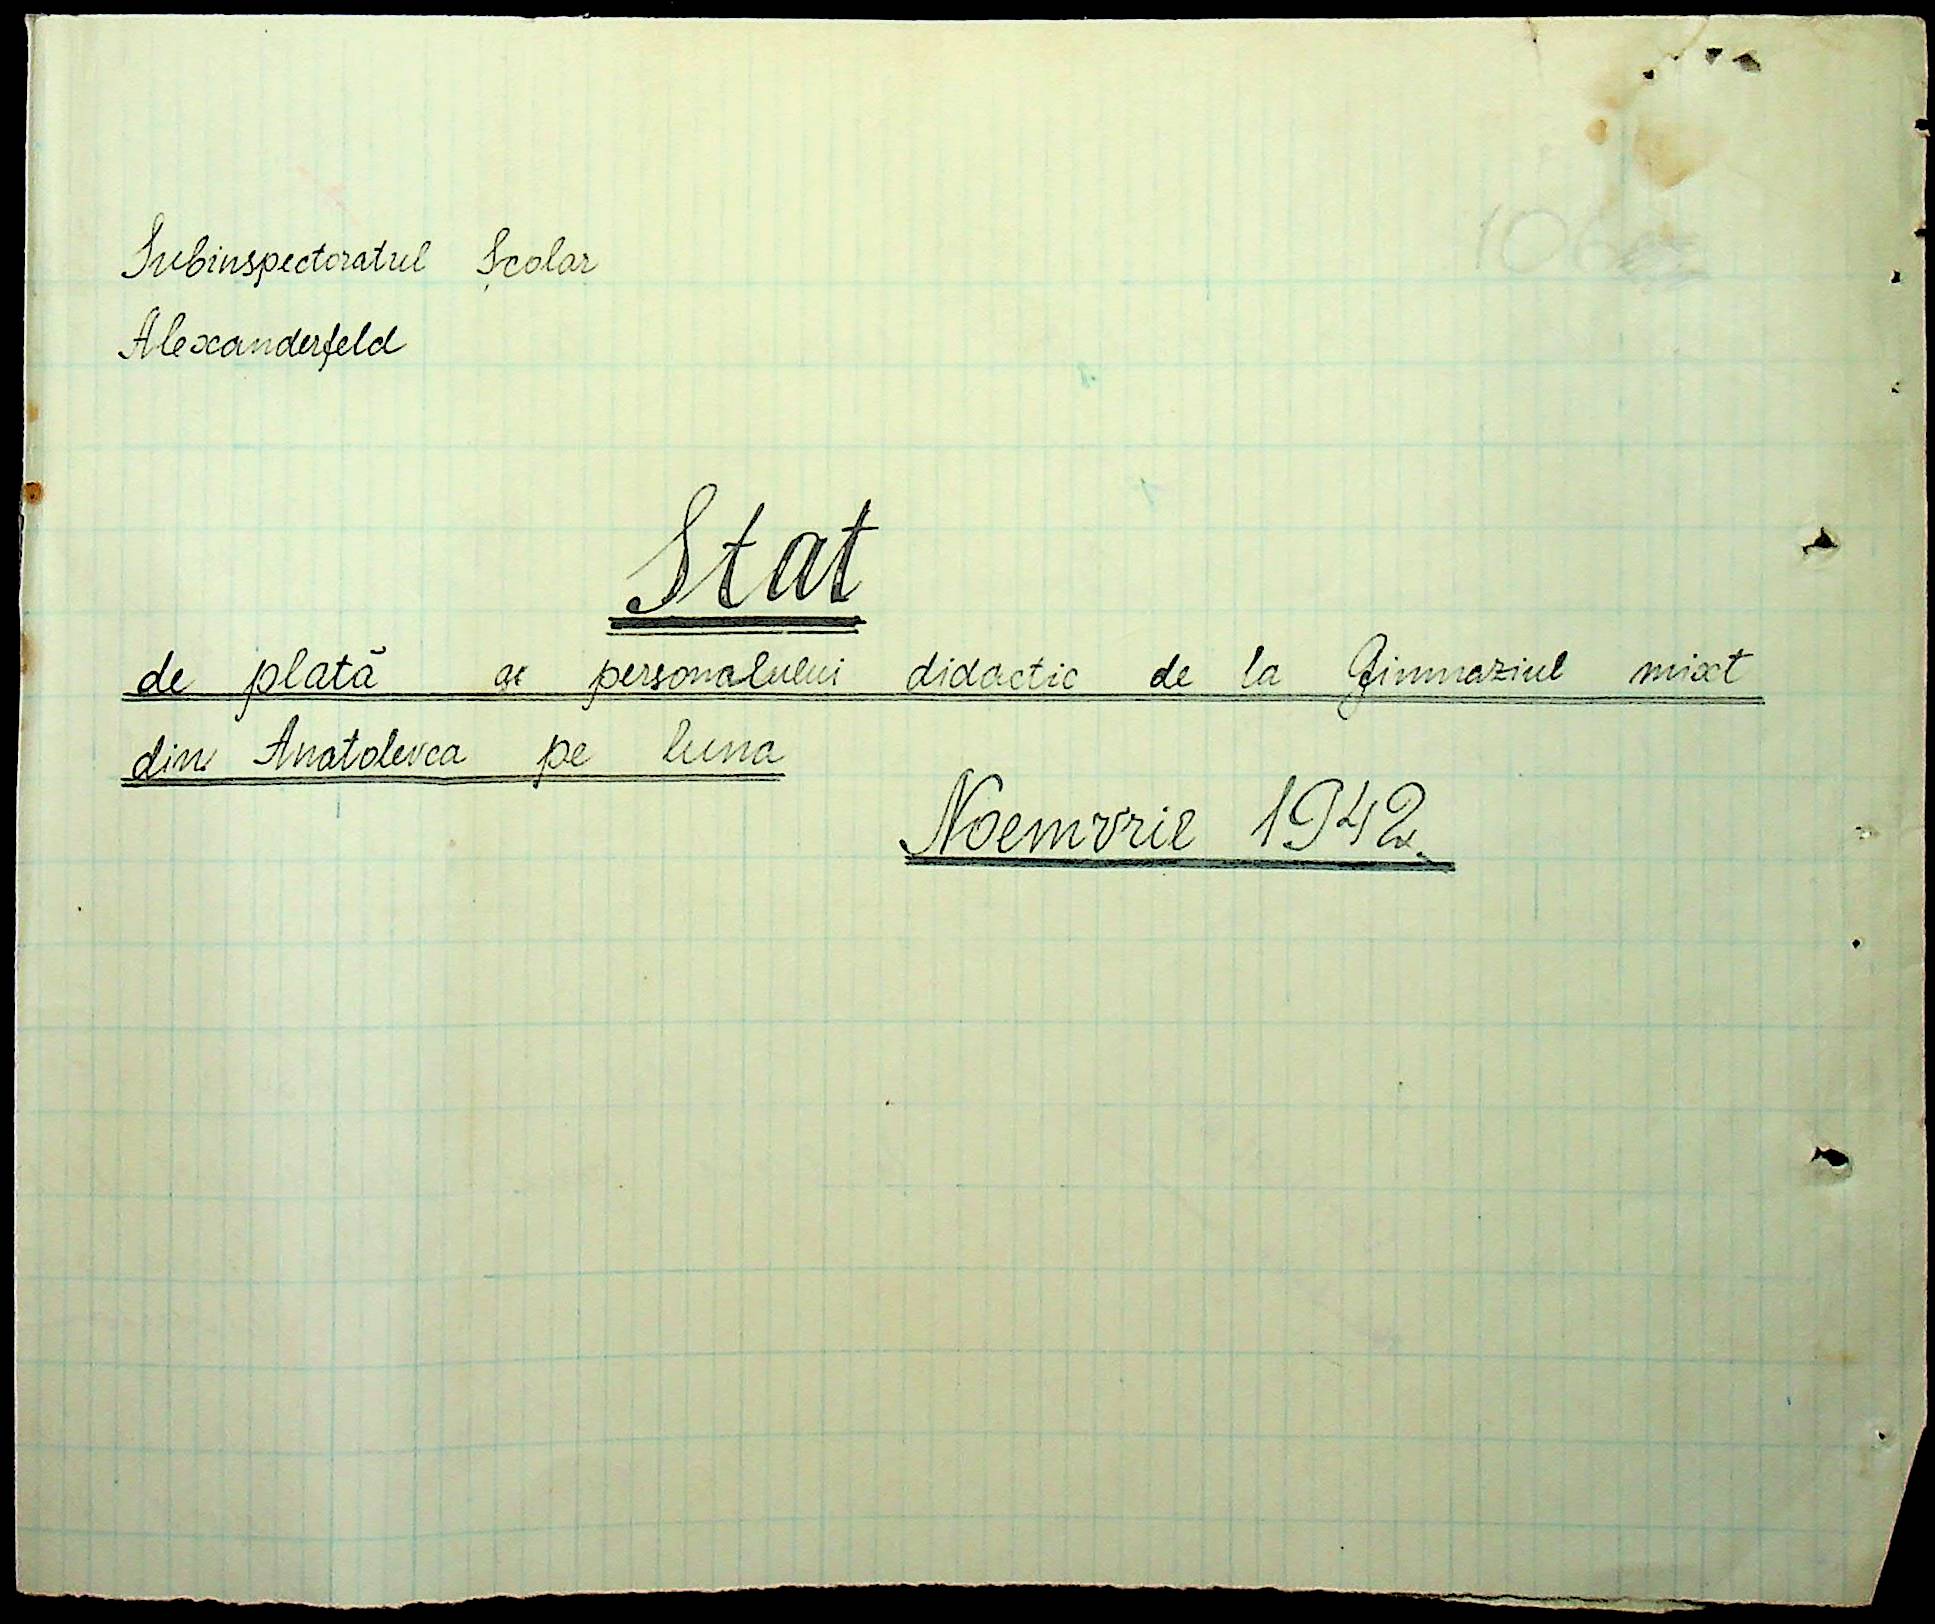 Subinspectoratul Școlar
Alexanderfeld
Stat
de plată al personalului didactic de la Gimnaziul mixt
din Anatolevca pe luna
Noemvrie 1942.